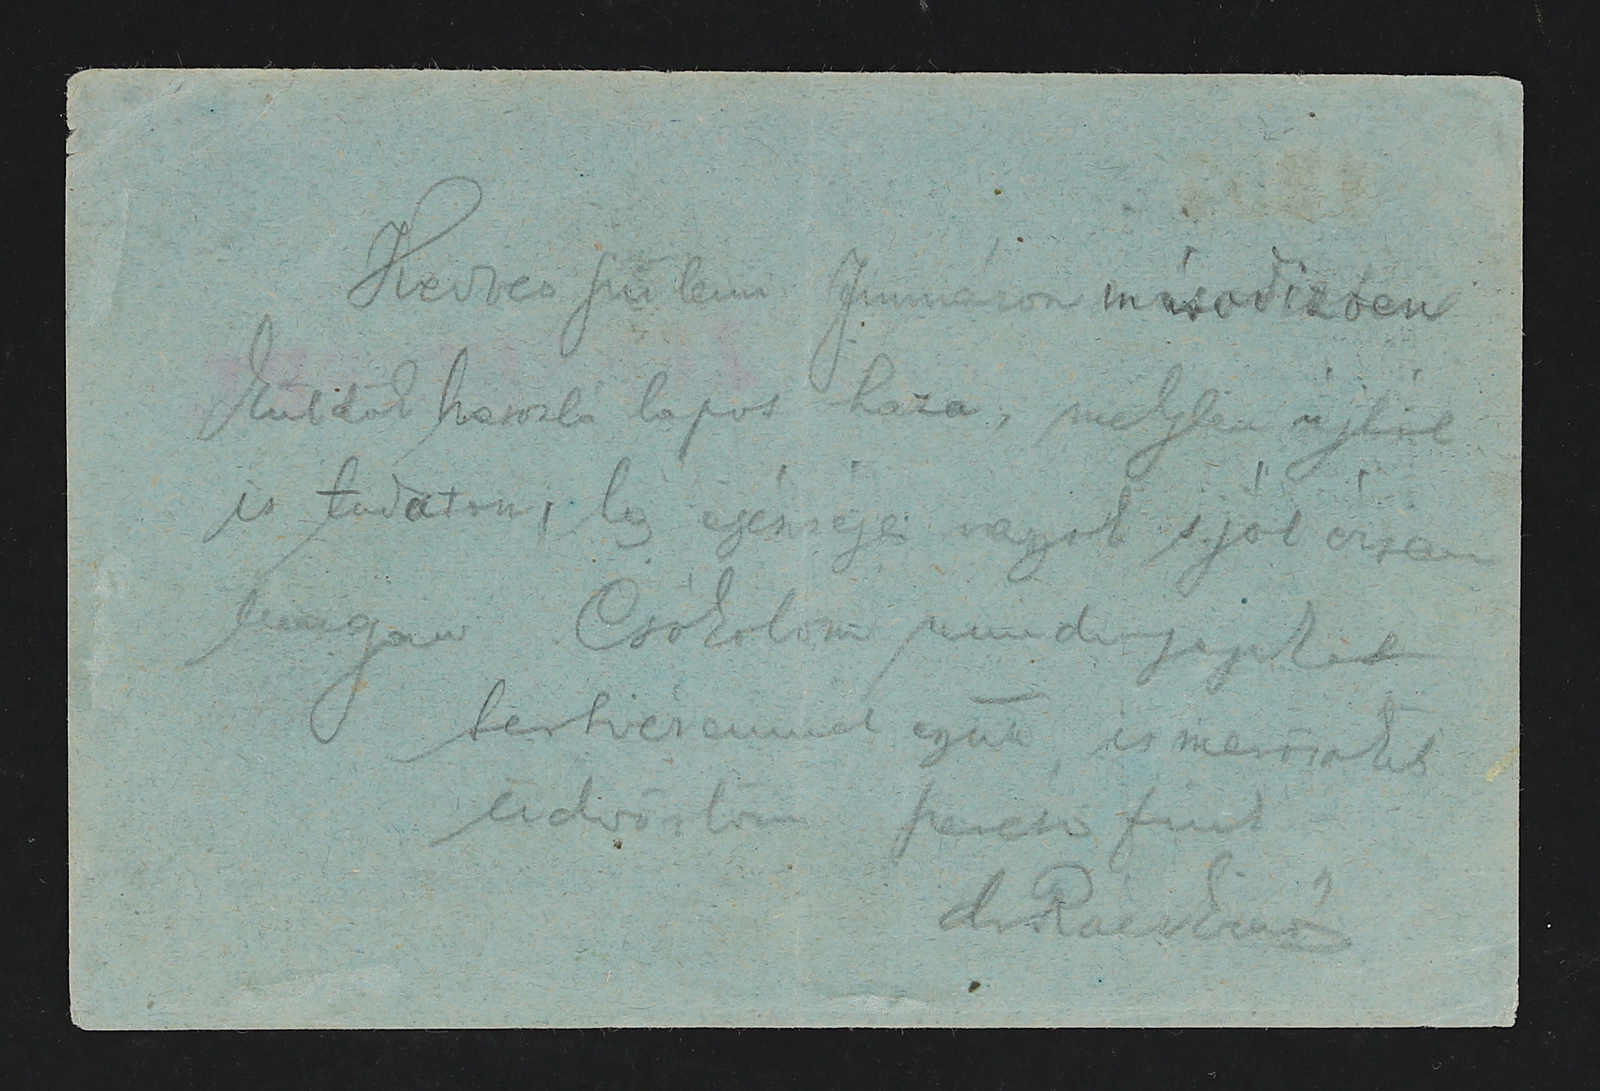 Kedves szüleim Immáron másodízben
küldök hasonló lapot haza, melyben újból
is tudatom, hogy egészséges vagyok s jól érzem
magam Csókolom mindnyájukat
testvéreimmel együtt ismerősöket
üdvözlöm szerető fiuk
dr Rácz Ernő